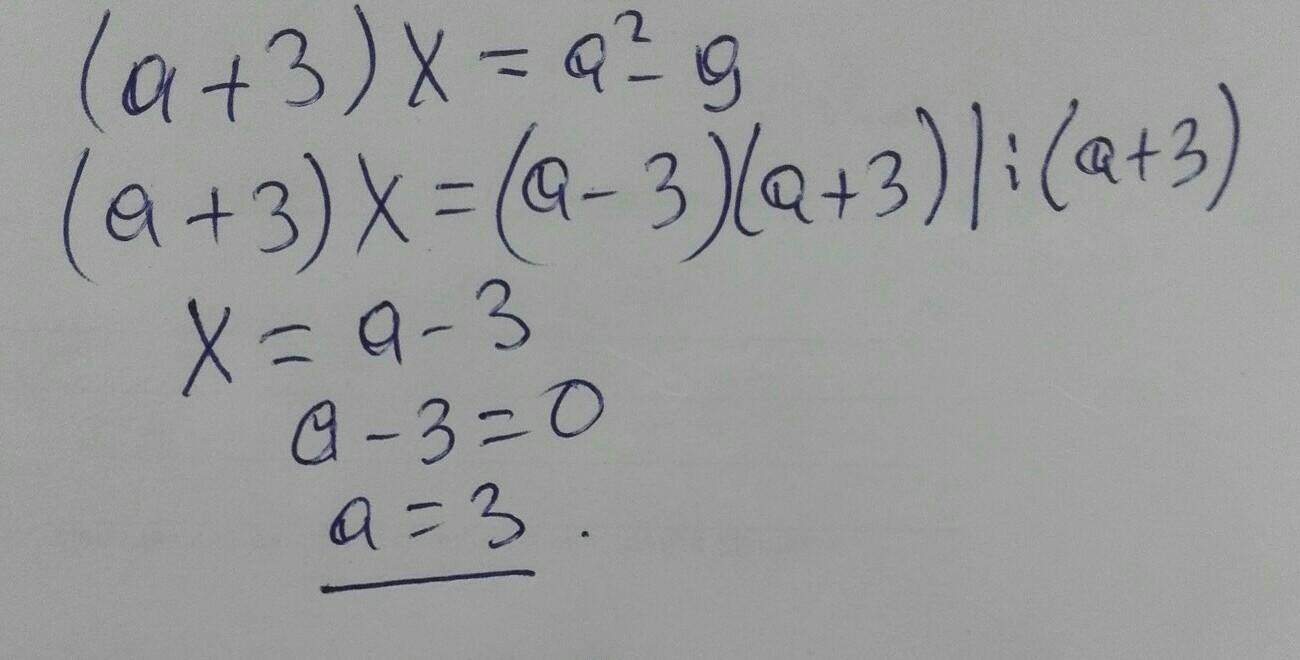 (a+3)X=a²-9
(a+3)X=(a-3)(a+3)|:(a+3)
X=a-3
a-3=0
a=3.